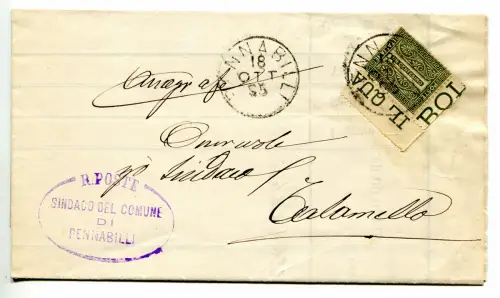 PENNABILLI
18
OTT
95
IL QUA
BOL
Anagrafe
Onorevole
Sindaco
Talamello
R. POSTE
SINDACO DEL COMUNE
DI
PENNABILLI